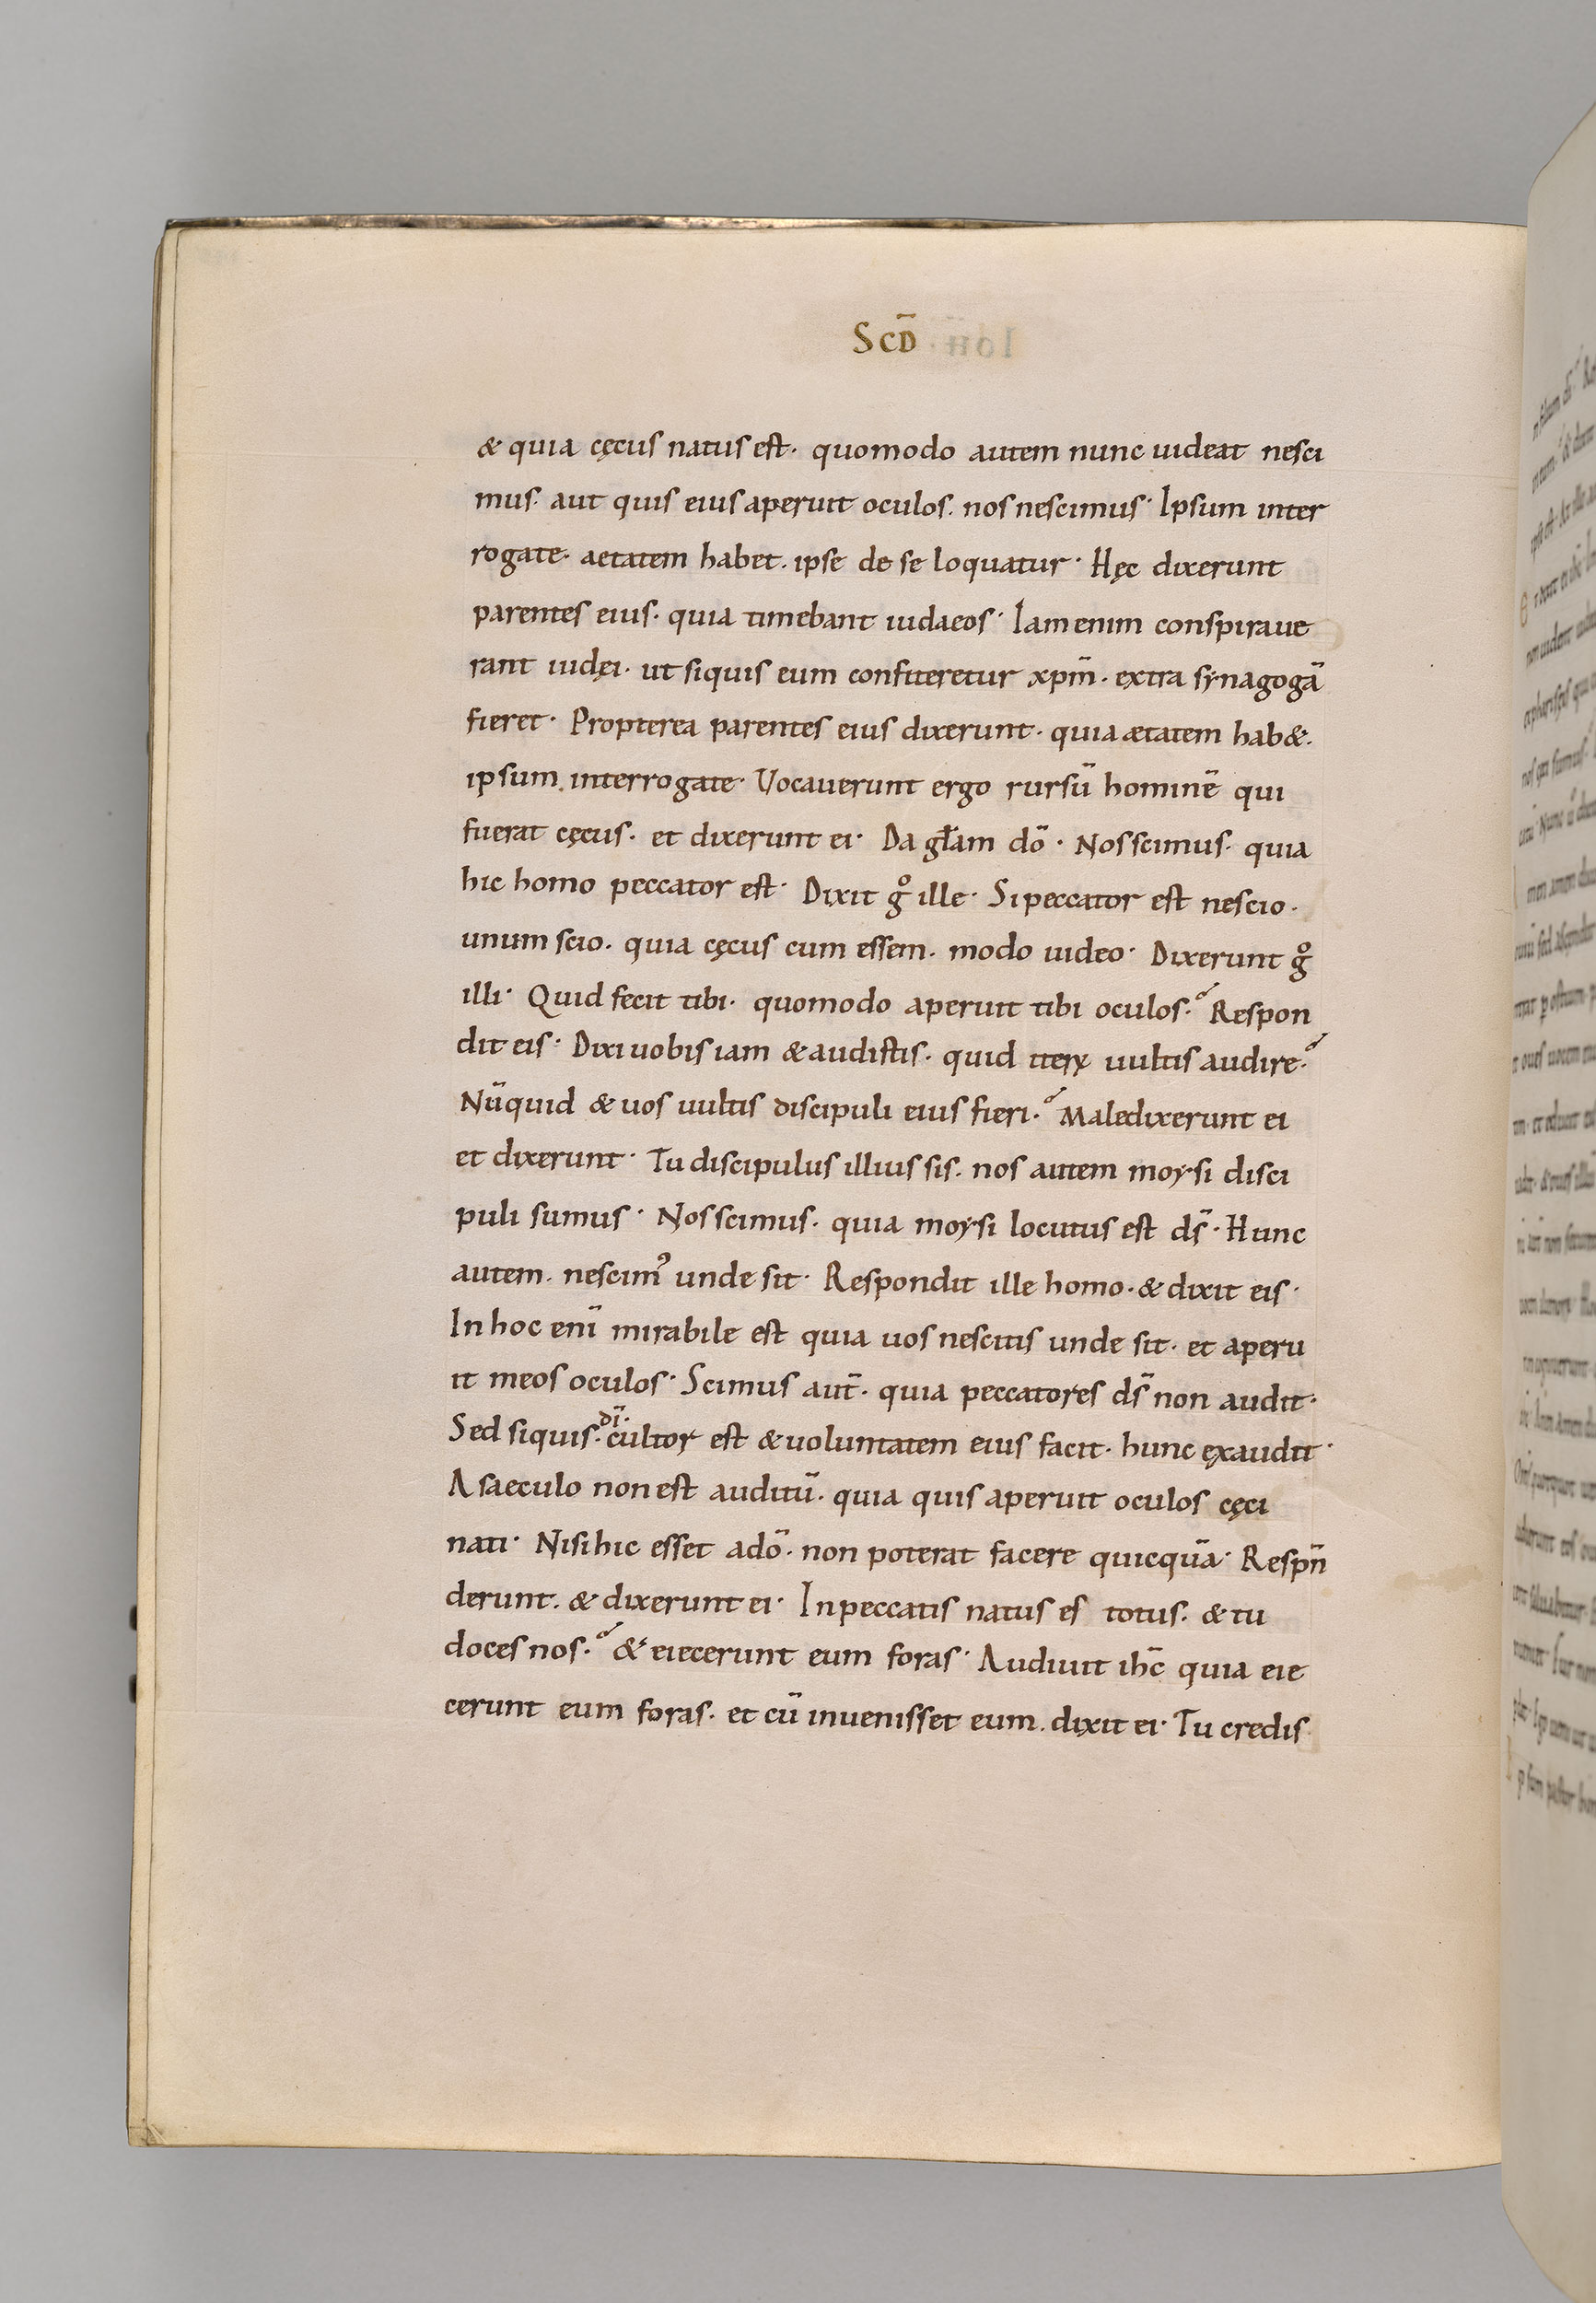 SCD̄
& quia cęcus natus est· quomodo autem nunc uideat nesci
mus· aut quis eius aperuit oculos· nos nescimus· Ipsum inter
rogate· aetatem habet· ipse de se loquatur· Hęc dixerunt
parentes eius· quia timebant iudaeos· Iam enim conspiraue
rant iudęi· ut siquis eum confiteretur xp̄m· extra synagogā
fieret· Propterea parentes eius dixerunt· quia ætatem hab&·
ipsum interrogate· Vocauerunt ergo rursū hominē qui
fuerat cęcus· et dixerunt ei· Da gl̄am dō· Nos scimus· quia
hic homo peccator est· Dixit gͦ ille· Si peccator est nescio·
unum scio· quia cęcus cum essem· modo uideo· Dixerunt gͦ
illi· Quid fecit tibi· quomodo aperuit tibi oculos? Respon
dit eis· Dixi uobis iam & audistis· quid iterꝝ uultis audire?
Nūquid & uos uultis discipuli eius fieri? Maledixerunt ei
et dixerunt· Tu discipulus illius sis· nos autem moysi disci
puli sumus· Nos scimus· quia moysi locutus est ds̄· Hunc
autem· nescimꝰ unde sit· Respondit ille homo· & dixit eis·
In hoc enī mirabile est quia uos nescitis unde sit· et aperu
it meos oculos· Scimus aut̄· quia peccatores ds̄ non audit·
Sed siquis· dī· cultor est & uoluntatem eius facit· hunc exaudit·
A saeculo non est auditū· quia quis aperuit oculos cęci
nati· Nisi hic esset adō· non poterat facere quicquā· Respn̄
derunt· & dixerunt ei· In peccatis natus es totus· & tu
doces nos? & eiecerunt eum foras· Audiuit ihc̄ quia eie
cerunt eum foras· et cū inuenisset eum· dixit ei· Tu credis